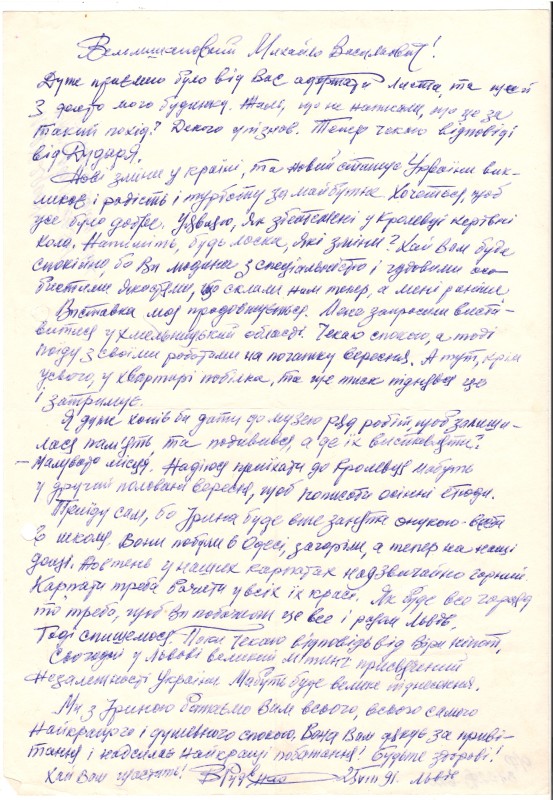 Вельмишановний Михайло Васильович!
Дуже приємно було від Вас одержати листа, та ще й
з фото мого будинку. Жаль, що не написали, що це за
такий похід? Декого упізнав. Тепер чекаю відповіді
від
Нові зміни у країні, та новий статус України вик-
ликає і радість і турботу за майбутнє. Хочеться, щоб
усе було добре. Уявляю, як збентежені у Кролевці керівні
кола. Напишіть, будь ласка, які зміни? Хай Вам буде
спокійно, бо Ви людина з спеціальністю і чудовими осо-
бистими якостями, що склали нам тепер, а мені раніше
Виставка моя продовжується. Мене запросили виста-
витися у Хмельницькій області. Чекаю спокою, а тоді
поїду з своїми роботами на початку вересня. А тут, крім
усього, у квартирі побілка, та ще тиск піднявся це
і затримує.
Я дуже хотів би дати до музею ряд робіт щоб залиши-
лася пам'ять та подивився, а де їх виставляти?
– Малувато місця. Надіюся приїхати до Кролевця мабуть
у другій половині вересня, щоб пописати осінні етюди.
Приїду сам, бо Ірина буде вже зайнята онукою – вести
до школи. Вони побули в Одесі, загоріли, а тепер на нашій
дощі. А осінь у наших Карпатах надзвичайно гарний.
Карпати треба бачити у всіх їх красі. Як буде все гаразд
то треба, щоб Ви побачили це все і разом Львів.
Тоді спишемося. Поки чекаю відповідь від Віри
Сьогодні у Львові великий мітинг присвячений
Незалежності України. Мабуть буде велике піднесення.
Ми з Іриною бажаємо Вам всього, всього самого
найкращого і душевного спокою. Вона Вам дякує за приві-
тання і надсилає найкращі побажання! Будьте здорові!
Хай Вам щастить! 25 VIII 91. Львів